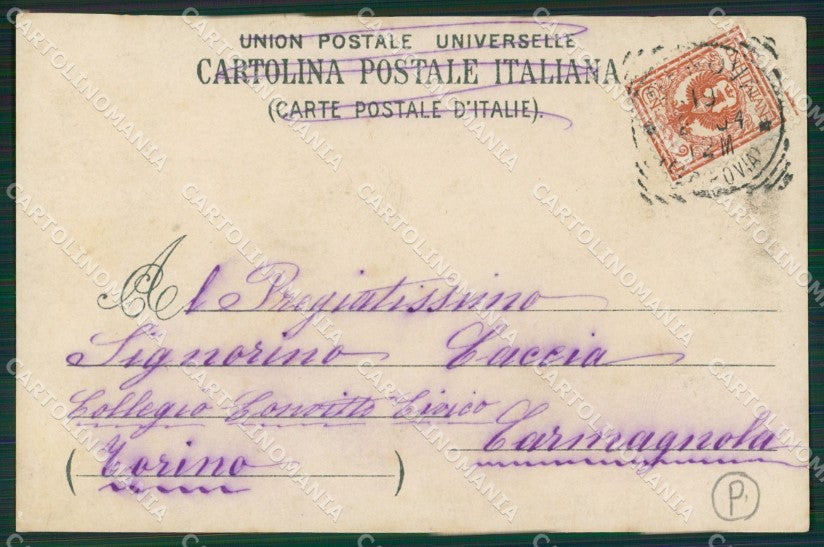 UNION POSTALE UNIVERSELLE
CARTOLINA POSTALE ITALIANA
(CARTE POSTALE D'ITALIE).
19
12 M
Al Pregiatissimo
Signorino Caccia
Collegio Convitto Civico
Carmagnola
(Torino)
P.
CARTOLINOMANIA